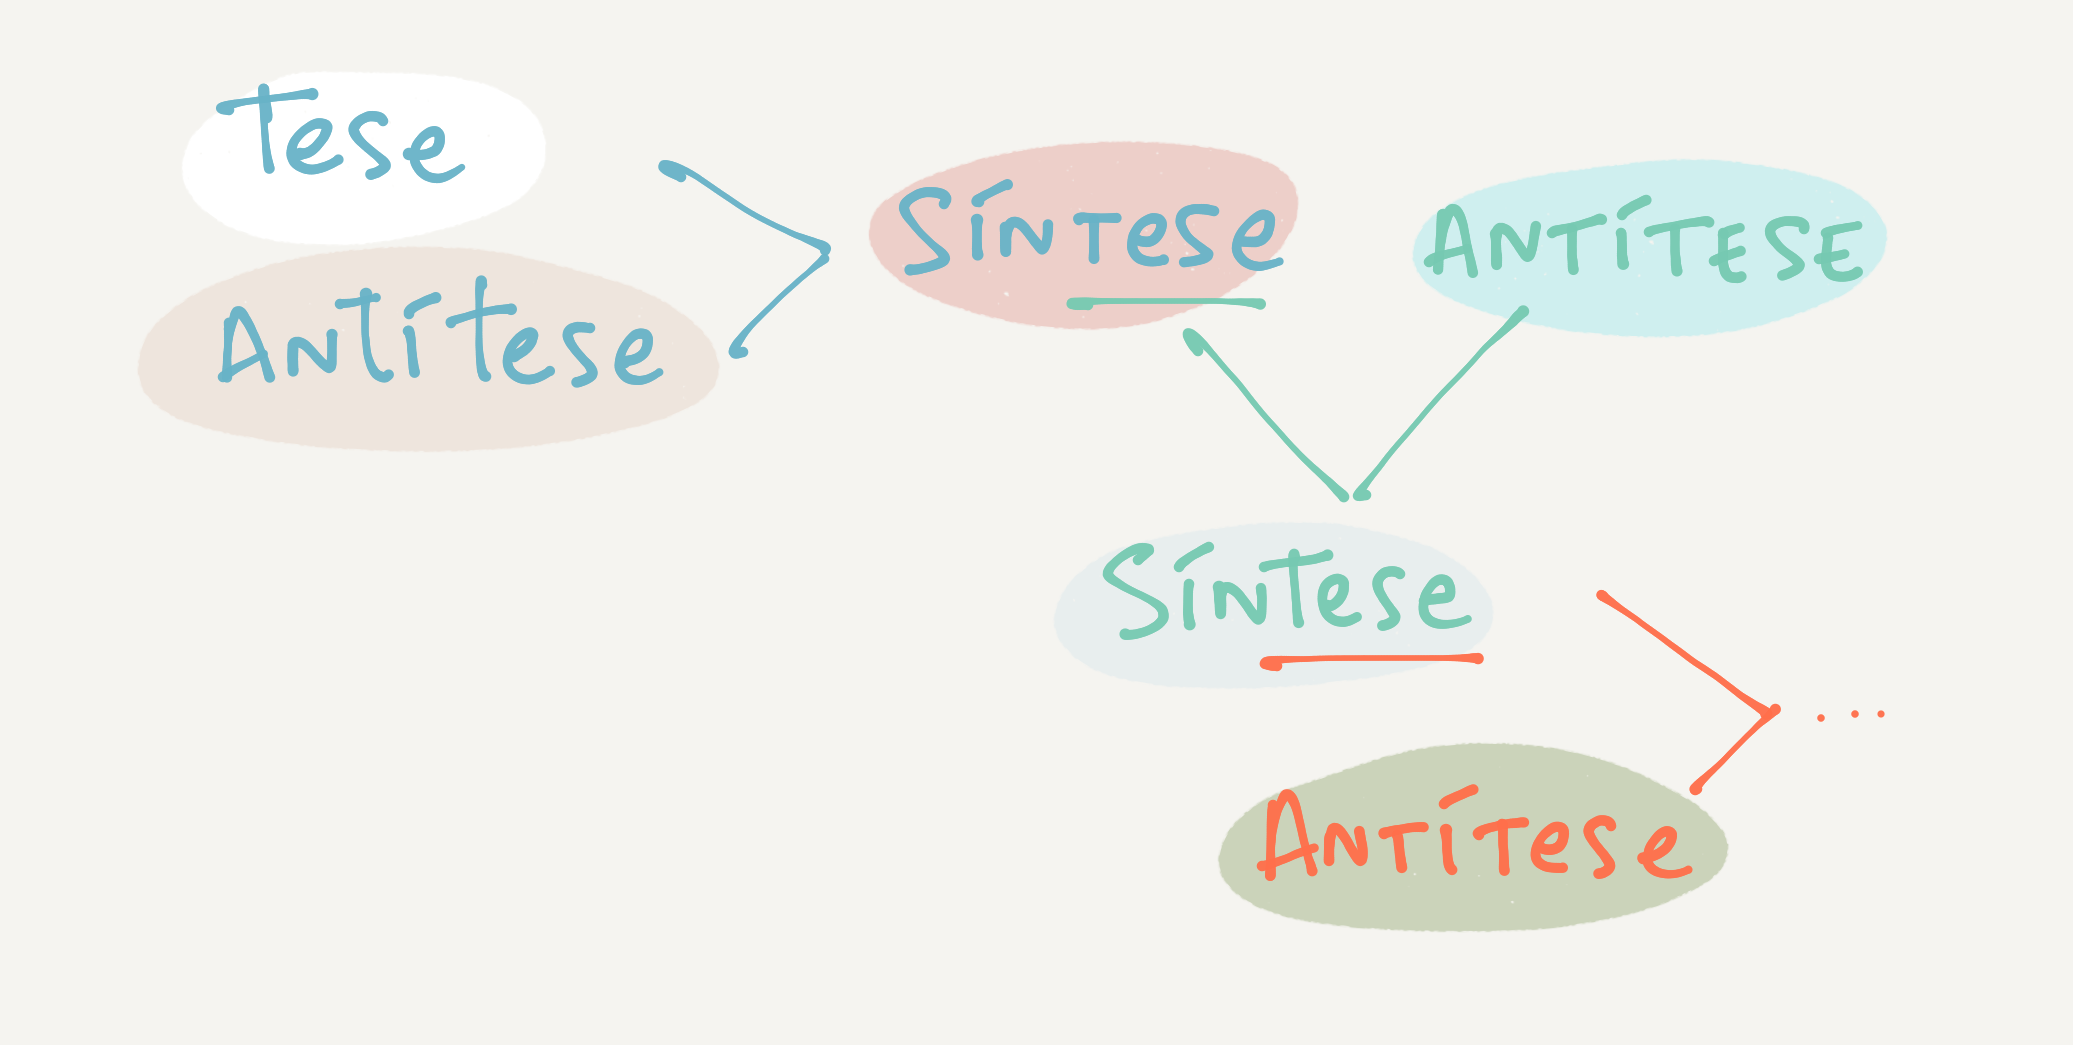 Tese
Antítese
Síntese
ANTÍTESE
Síntese
Antítese
...